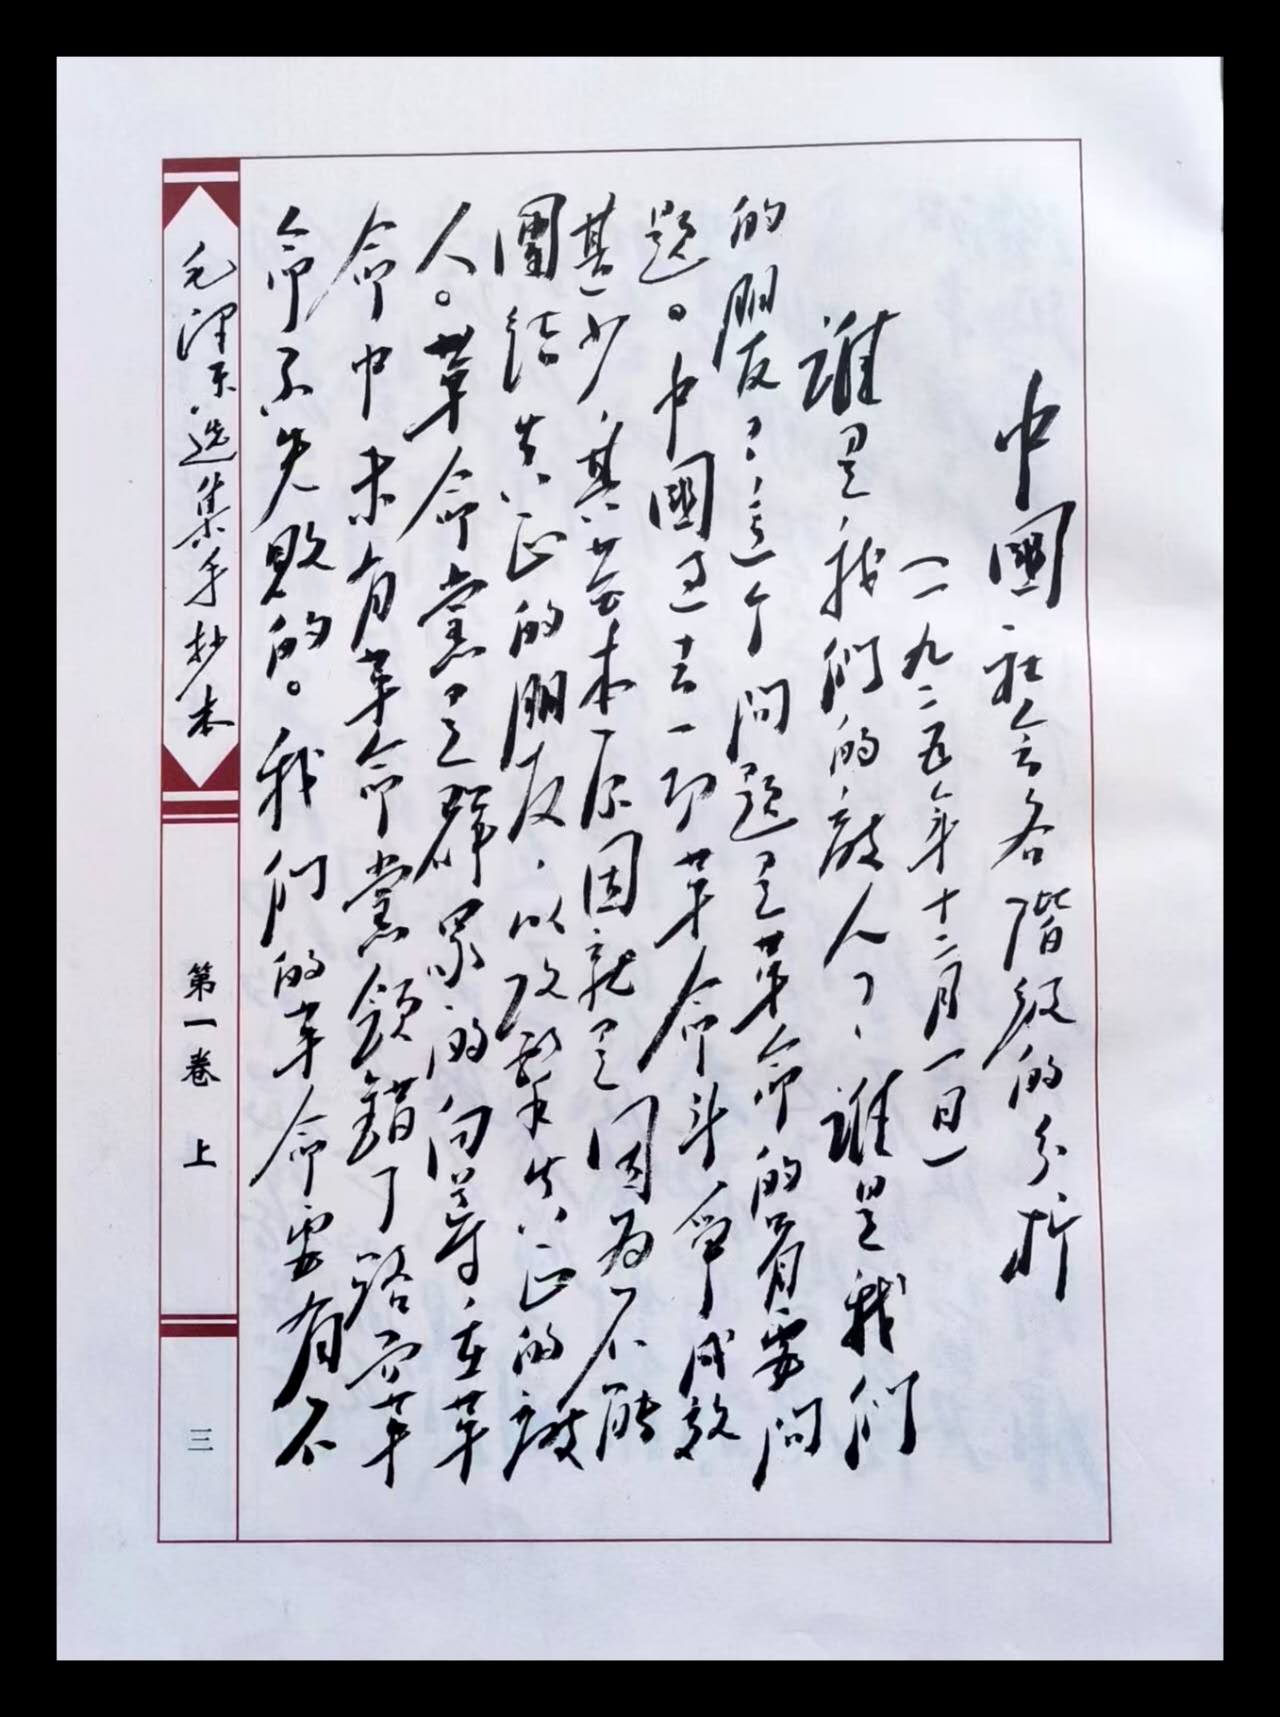 中國社会各階级的分析
(一九二五年十二月一日)
誰是我们的敌人?誰是我们
的朋友?这个问题是革命的首要问
题。中國过去一切革命斗爭成效
甚少,其基本原因就是因为不能
團结真正的朋友,以攻擊真正的敌
人。革命黨是群眾的向導,在革
命中未有革命黨領錯了路而革
命不失败的。我们的革命要有不
毛泽东选集手抄本
第一卷 上
三